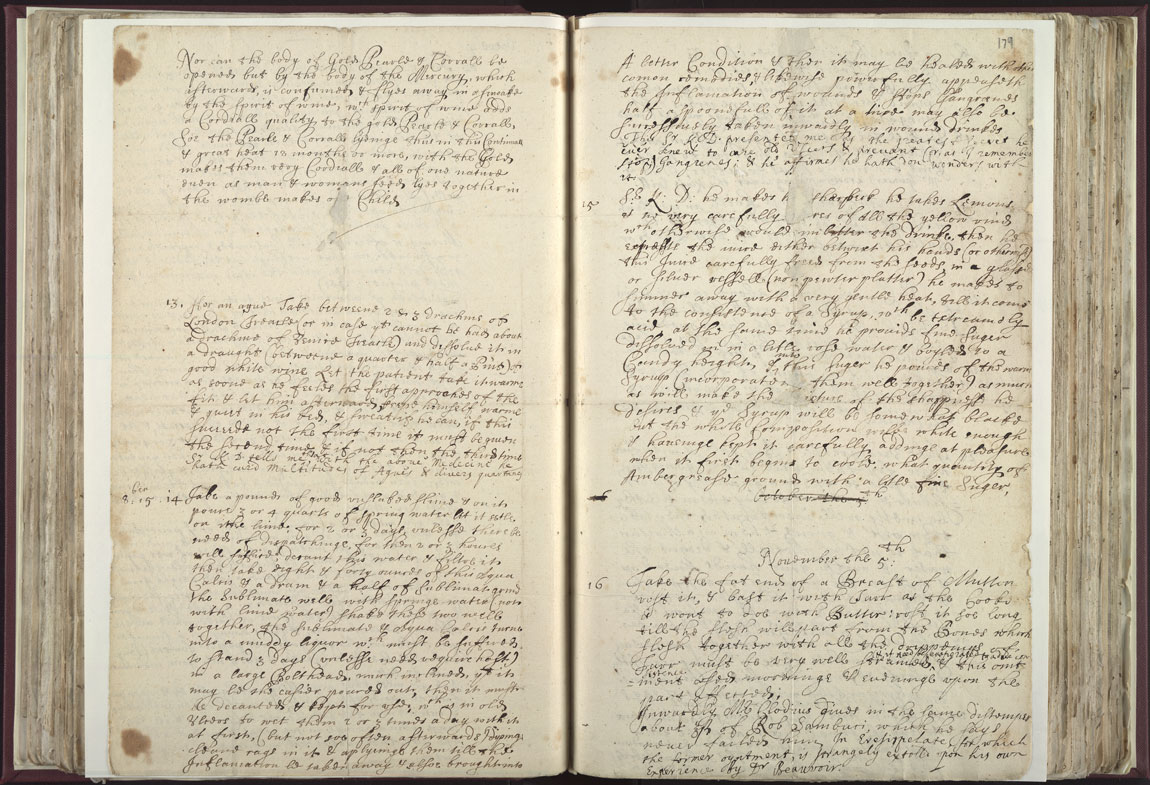 Nor can the body of Gold Pearle & Corrall be
opened but by the body of the Mercury, which
afterwards is consumed & flyes away in smoake
by the spirit of wine, wch spirit of wine adds
a Cordiall quality to the gold Pearle & Corrall,
Soe the Pearle & Corrall lyeinge thus in this Continuall
& great heat 12 months or more, with the Gold
makes them very Cordiall & all of one nature
even as man & womans seed lyes together in
the wombe makes a Child
13. For an ague Take betweene 2 & 3 drachms of
London Treacle (or in case yt cannot be had about
a drachme of Venice Treacle) and dissolve it in
a draught (betweene a quarter & half a Pint) of
good white wine Let the patient take it warme
as soone as he feeles the first approches of the
fit & let him afterwards keepe himself warme
& quiet in his bed, & sweat if he can, if this
succeede not the first time it must be given
the second time, & if not then the third time
tells me with the above Medicine he
hath cured Multitudes of Agues & divers quartans
8. 15. 14 Take a pounde of good unslaked lime & on it
poure 3 or 4 quarts of spring water let it setle
on the lime for 2 or 3 days, unlesse there be
need of dispatchinge, for then 2 or 3 houres
will suffice; decant this water & filter it
then take eight & forty ounces of this Aqua
Calcis & a dram & a half of Sublimat grind
the Sublimate well with springe water (not
with lime water) shake these two well
together, the Sublimate & Aqua Calcis turns
into a muddy liquor wch must be suffered
to stand 3 days (unlesse need require hast)
in a large Bolthead, much inclined, yt it
may be the easier poured out, then it must
be decanted & kept for use; wch is in old
Ulcers to wet them 2 or 3 times a day with it
at first, (but not soe often afterwards) Dipping
cleane rags in it & applyinge them till the
Inflamation be taken away & ulcer brought into
179
A better Condition & then it may be healed with
comon remedies & likewise powerfully appeaseth
the Inflamation of wounds & stops Gangrenes
half a spoonfull of it at a time may also be
successfully taken inwardly in wound drinkes
This Sr K D: presented me as the greatest secret he
ever knew to cure old Ulcers & prevent (nay remember
stop) Gangrenes; & he affirmes he hath don wonders with
it.
15 Sr K D: he makes his he takes Lemons
very carefully of all the yellow rind
wch otherwise would imbitter the drinke, then he
the juice either betwixt his hands (or otherwise)
this Juice carefully freed from the seeds, in a glasse
or silver vessell (non pewter platter) he makes to
simmer away with a very gentle heat, till it come
to the consistence of a Syrup, wch be extreamely
acid, at the same time he provids fine Suger
dissolved in a little rose water & boyled to a
Candy height, & into this Suger he poures of the warm
Syrup (incorporating them well together) as much
as will make the mixture of the sharpnesse he
desires & ye Syrup will be somewhat blacke
but the whole Composition will white enough
& haveinge kept it carefully addinge at pleasure
when it first begins to coole, what quantity of
Ambergrease ground with a little fine Suger.
October the 5th
November the 5th:
16 Take the fat end of a Breast of Mutton
rost it, & bast it with Tarr as the Cooks
is wont to doe with Butter: rost it soe long
till the flesh will part from the Bones which
flesh together with all the drippings &
Tarr must be very well strained, & this oint
ment used mornings & evenings upon the
part affected.
Inwardly Mr Clodius Gives in the same distemper
about of Rob Sambuci, which he says
never failed him In Erysipelate for which
the former oyntment, is strangely extold upon his own
Experience by Dr Beauvoir.